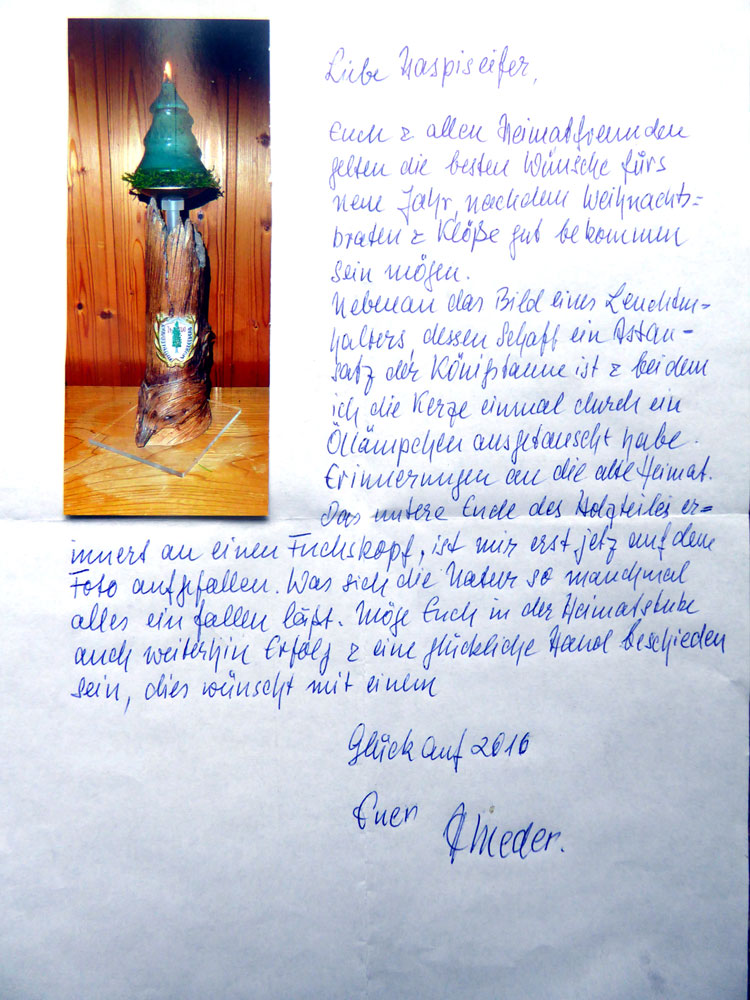 Liebe Haspiseifer,
Euch & allen Heimatfreunden
gelten die besten Wünsche fürs
neue Jahr, nachdem Weihnachts=
braten & Klöße gut bekommen
sein mögen.
Nebenan das Bild eines Leuchten=
halters, dessen Schaft ein Astan=
satz der Königstanne ist & bei dem
ich die Kerze einmal durch ein
Öllämpchen ausgetauscht habe.
Erinnerungen an die alte Heimat.
Das untere Ende des Holzteiles er=
innert an einen Fuchskopf, ist mir erst jetz auf dem
Foto aufgefallen. Was sich die Natur so manchmal
alles einfallen läßt. Möge Euch in der Heimatstube
auch weiterhin Erfolg & eine glückliche Hand beschieden
sein, dies wünscht mit einem
Glück auf 2016
Euer